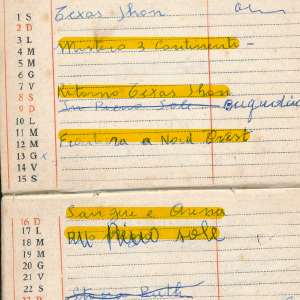 1 S Texas Jhon
2 D
3 L
4 M Mistero 3 Continenti -
5 M
6 G
7 V Ritorno Texas Jhon
8 S
9 D In Pieno Sole
10 L
11 M Frontiera a Nord Ovest
12 M
13 G x
14 V
15 S
16 D Sangue e Arena
17 L
18 M Pieno sole
19 M
20 G
21 V
22 S
23 D